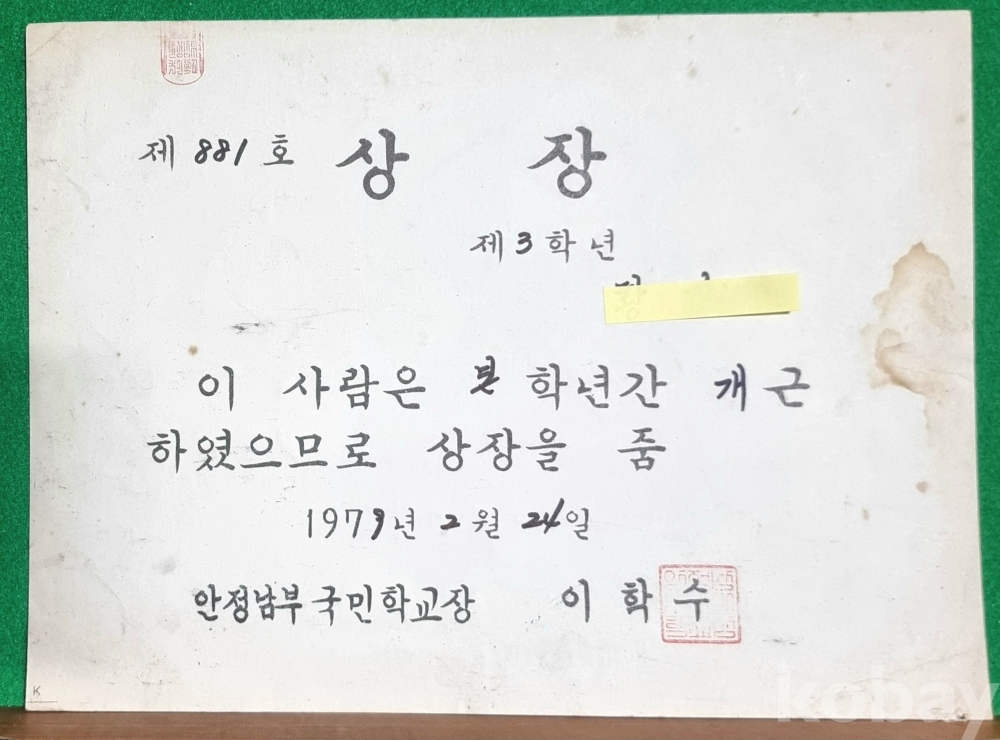 제 881 호 상 장
제 3 학 년
이 사람은 본 학년간 개근
하였으므로 상장을 줌
1979년 2 월 24일
안정남부국민학교장 이 학 수
K
kobay